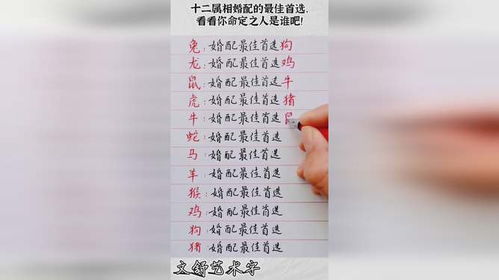 十二属相婚配的最佳首选.
看看你命定之人是谁吧!
兔:婚配最佳首选狗
龙:婚配最佳首选鸡
鼠:婚配最佳首选牛
虎:婚配最佳首选猪
牛:婚配最佳首选
蛇:婚配最佳首选
马:婚配最佳首选
羊:婚配最佳首选
猴:婚配最佳首选
鸡:婚配最佳首选
狗:婚配最佳首选
猪:婚配最佳首选
文舒艺术字